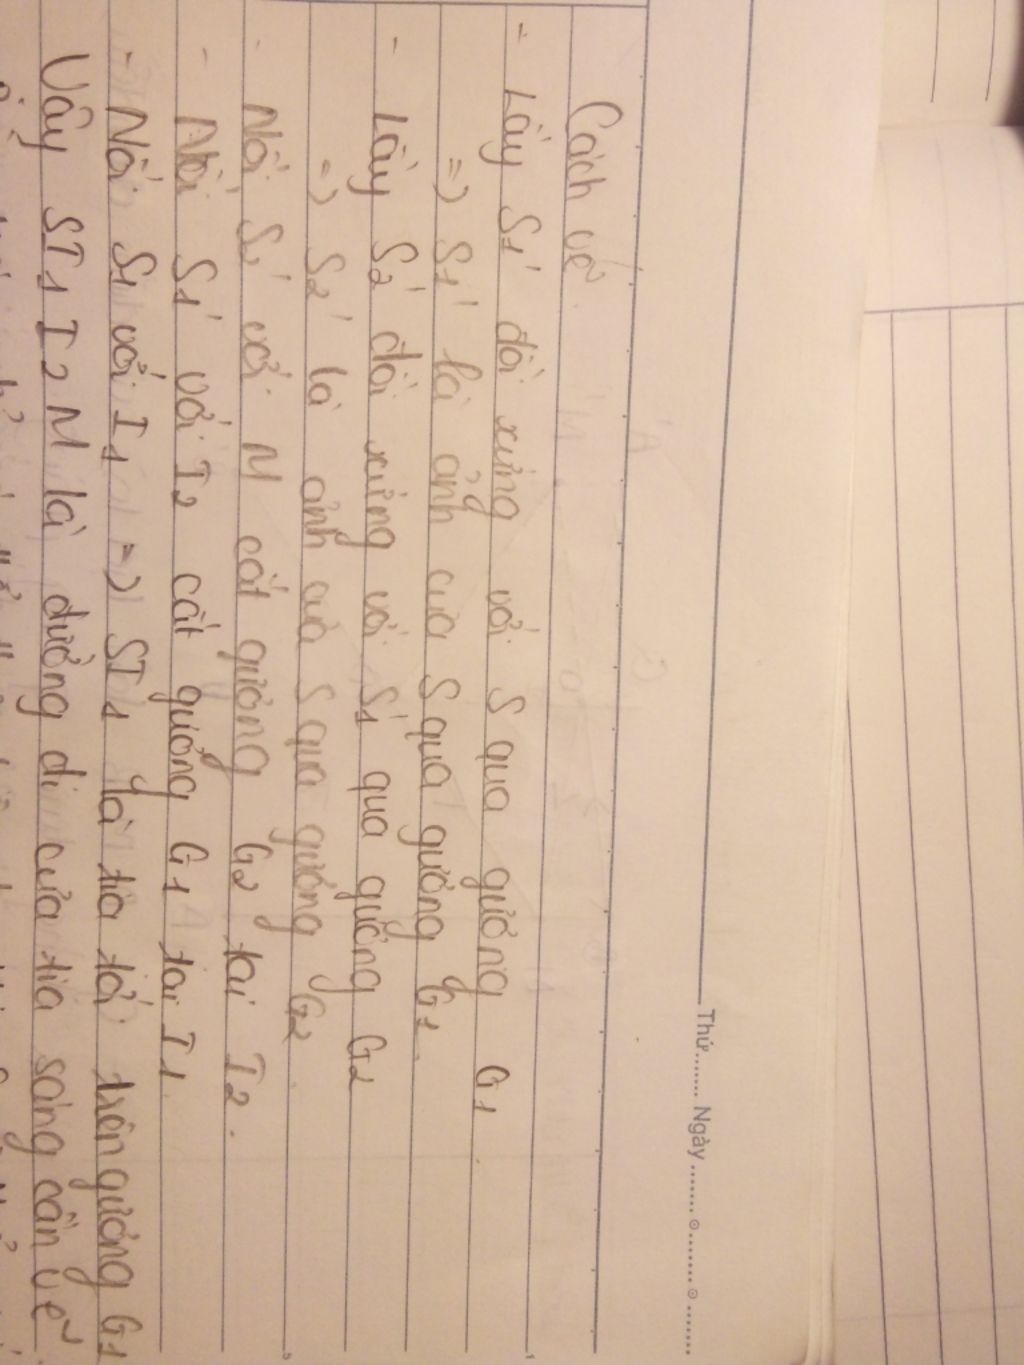 Thứ........ Ngày ........ ⊙........ ⊙ ......
Cách vẽ
- Lấy S1' đối xứng với S qua gương G1
=) S1' là ảnh của S qua gương G1.
- Lấy S2' đối xứng với S1 qua gương G2
=) S2' là ảnh của S qua gương G2
- Nối S2' với M cắt gương G2 tại I2.
- Nối S1' với I2 cắt gương G1 tại I1.
- Nối S1 với I1 =) SI1 là tia tới trên gương G1
Vậy SI1 I2 M là đường đi của tia sáng cần vẽ